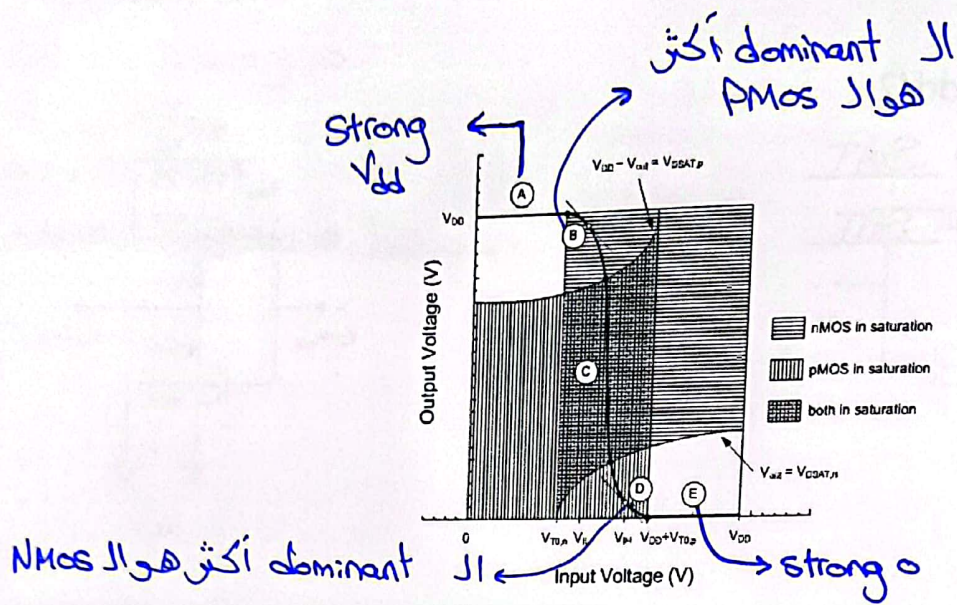 ال dominant أكثر
هوال PMOS
Strong
Vdd
A
V_DD - V_out = V_DSAT,p
V_DD
B
Output Voltage (V)
nMOS in saturation
pMOS in saturation
C
both in saturation
V_out = V_DSAT,n
D
E
0
V_T0,n
V_IL
V_IH
V_DD+V_T0,p
V_DD
ال dominant أكثر هوال NMOS
Input Voltage (V)
strong 0